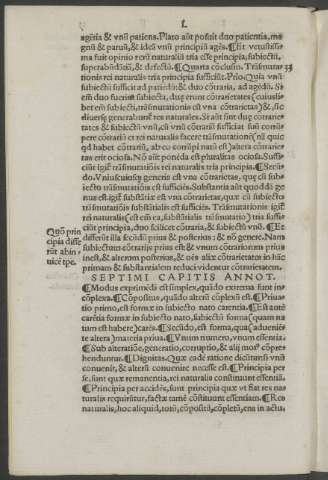 I.
agētia & vnū patiens. Plato aūt posuit duo patientia, ma
gnū & paruū, & ideā vnū principiū agēs. ¶Et vetustissi
ma fuit opinio rerū naturaliū tria esse principia, subiectū,
superabūdātiā, & defectū. ¶Quarta cōclusio. Trāsmuta-
tionis rei naturalis tria principia sufficiūt. Prīo. Quia vnū
subiectū sufficit ad patiēdū & duo cōtraria, ad agēdū. Si
em duo fuerint subiecta, duę erunt cōtrarietates (cuiusli-
bet em subiecti, trāsmutationis est vna cōtrarietas) & sic
diuersę generabunt res naturales. Si aūt sint duę cōtrarie-
tates & subiectū vnū, cū vnū cōtrariū sufficiat (sui corru-
pere cōtrariū et rei naturalis facere trāsmutationē) nō quic
qd habet cōtrariū, ab eo corrūpi natū est) altera cōtrarie-
tas erit ociosa. Nō aūt ponēda est pluralitas ociosa. Suffi-
ciūt igit trāsmutatiōi rei naturalis tria principia. ¶Secū-
do. Vniuscuiusq generis est vna cōtrarietas, quę cū sub-
iecto trāsmutationis est sufficiēs. Substantia aūt quoddā ge
nus est. igit substātiæ est vna cōtrarietas, quæ cū subiecto
trāsmutatiōis substātialis est sufficiēs. Trāsmutationis igit
rei naturalis (est em ea, substātialis trāsmutatio) tria suffi-
ciūt principia, duo scilicet cōtraria, & subiectū vnū. ¶Et
differūt illa scđm prius & posterius: & nō genere. Nam
subiectum cōtrariis prius est: & vnum cōtrariorum prius
inest, & alterum posterius, & oēs aliæ cōtrarietates in hāc
primam & substantialem reducividentur cōtrarietatem.
Quō prin
cipia diffe
rūt abin-
uicē tpe.
SEPTIMI CAPITIS ANNOT.
¶Modus exprimēdi est simplex, quādo extrema sunt in-
cōplexa. ¶Cōpositus, quādo alterū cōplexū est. ¶Priua-
tio primo, est formæ in subiecto nato carentia. ¶Est aūt
carētia formæ in subiecto nato, subiectū forma (quam na
tum est habere) carēs. ¶Secūdo, est forma, qua (aduenie-
te altera) materia priua. ¶Vnum numero, vnum essentia.
¶Sub alteratiōe, generatio, corruptio, & alij mot9 cōpre-
henduntur. ¶Dignitas. Quæ eadē ratione dicūtur: si vnū
conuenit, & alterū conuenire necesse est. ¶Principia per
se. sunt quæ remanentia, rei naturalis constituunt essentiā.
¶Principia per accidēs, sunt principia quæ vt fiat res na-
turalis requirūtur, facta tamē cōstituunt essentiam. ¶Res
naturalis, hoc aliquid, totū, cōpositū, cōpletū, ens in actu,